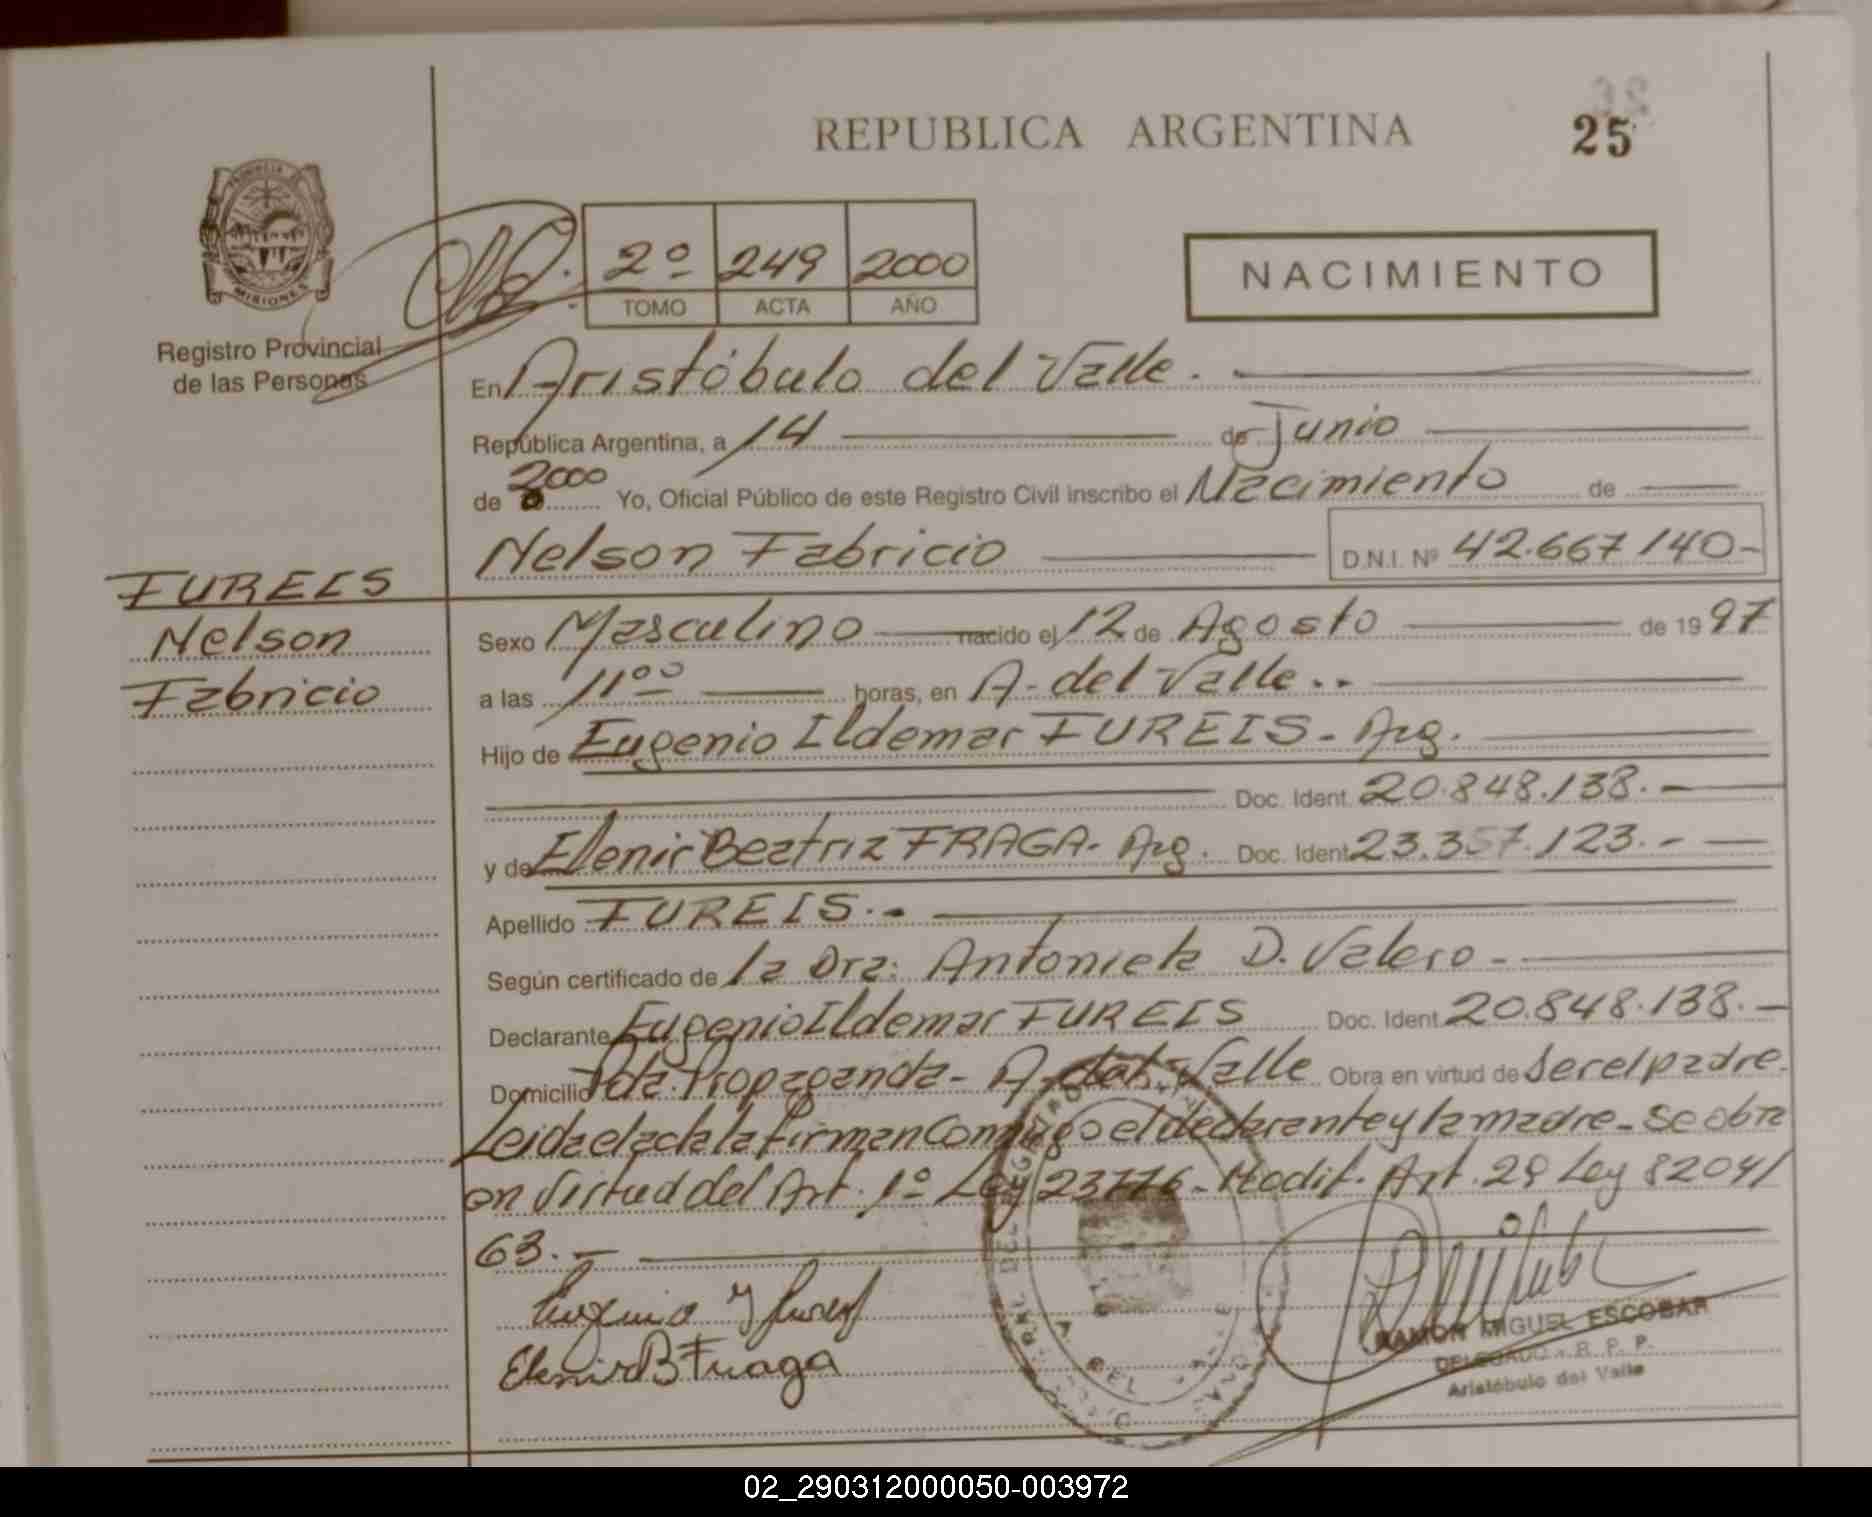 REPUBLICA ARGENTINA
25
PROVINCIA DE
MISIONES
Registro Provincial
de las Personas
2º 249 2000
TOMO ACTA AÑO
NACIMIENTO
En Aristóbulo del Valle.
República Argentina, a 14 de Junio
de 2000 Yo, Oficial Público de este Registro Civil inscribo el Nacimiento de
Nelson Fabricio D.N.I. Nº 42.667.140-
FUREIS
Nelson
Fabricio
Sexo Masculino nacido el 12 de Agosto de 1997
a las 11ºº horas, en A. del Valle..
Hijo de Eugenio Ildemar FUREIS- Arg.
Doc. Ident. 20.848.138.-
y de Elenir Beatriz FRAGA- Arg. Doc. Ident. 23.357.123.-
Apellido FUREIS.-
Según certificado de la Dra: Antonieta D. Valero-
Declarante Eugenio Ildemar FUREIS Doc. Ident. 20.848.138.-
Domicilio Pda. Propaganda- A. del Valle Obra en virtud de ser el padre-
Leida el acta la firman conmigo el declarante y la madre- se obra
en virtud del Art. 1º Ley 23776- Modif. Art. 28 Ley 8204/
63.-
Eugenio I Fureis
Elenir B Fraga
RAMON MIGUEL ESCOBAR
DELEGADO - R. P. P.
Aristóbulo del Valle
02_290312000050-003972